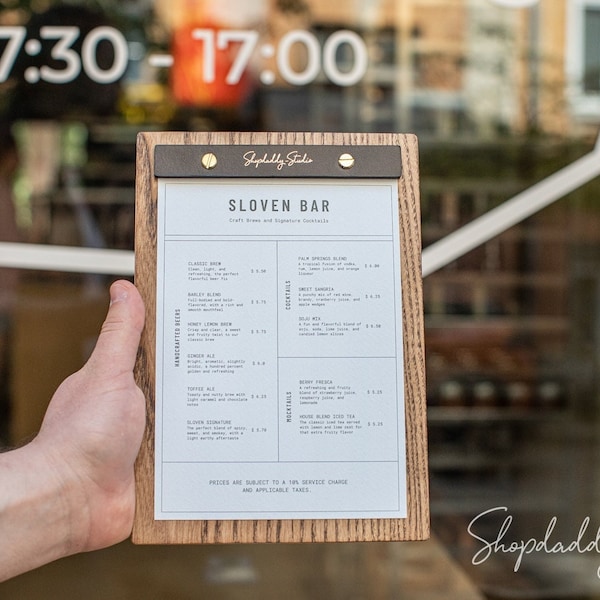 7:30 - 17:00
Shopdaddy Studio
SLOVEN BAR
Craft Brews and Signature Cocktails
HANDCRAFTED BEERS
CLASSIC BREW
Clean, light, and
refreshing, the perfect
flavorful beer fix
$ 5.50
BARLEY BLEND
Full-bodied and bold-
flavored, with a rich and
smooth mouthfeel
$ 5.75
HONEY LEMON BREW
Crisp and clear, a sweet
and fruity twist to our
classic brew
$ 5.75
GINGER ALE
Bright, aromatic, slightly
acidic, a hundred percent
golden and refreshing
$ 6.0
TOFFEE ALE
Toasty and nutty brew with
light caramel and chocolate
notes
$ 6.25
SLOVEN SIGNATURE
The perfect blend of spicy,
sweet, and smokey, with a
light earthy aftertaste
$ 5.70
COCKTAILS
PALM SPRINGS BLEND
A tropical fusion of vodka,
rum, lemon juice, and orange
liqueur
$ 6.00
SWEET SANGRIA
A punchy mix of red wine,
brandy, cranberry juice, and
apple wedges
$ 6.25
SOJU MIX
A fun and flavorful blend of
soju, soda, lime juice, and
candied lemon slices
$ 6.50
MOCKTAILS
BERRY FRESCA
A refreshing and fruity
blend of strawberry juice,
raspberry juice, and
lemonade
$ 5.25
HOUSE BLEND ICED TEA
The classic iced tea served
with lemon and lime zest for
that extra fruity flavor
$ 5.25
PRICES ARE SUBJECT TO A 10% SERVICE CHARGE
AND APPLICABLE TAXES.
Shopdaddy